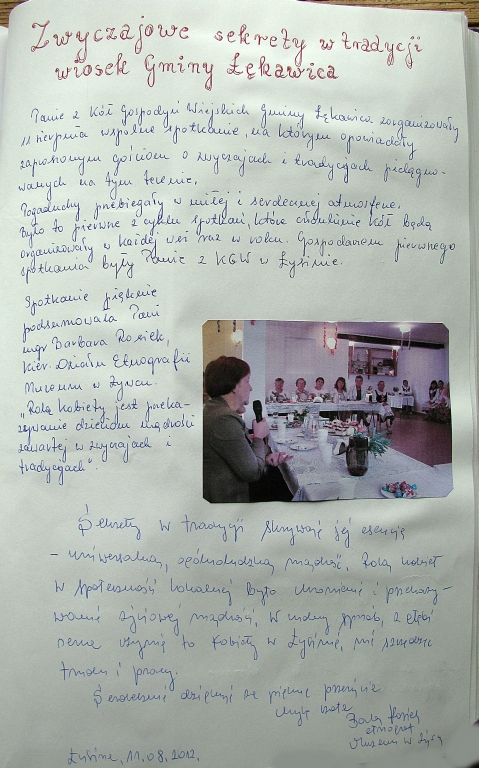 Zwyczajowe sekrety w tradycji
wiosek Gminy Łękawica
Panie z Kół Gospodyń Wiejskich Gminy Łękawica zorganizowały
11 sierpnia wspólne spotkanie, na którym opowiadały
zaproszonym gościom o zwyczajach i tradycjach pielęgno-
wanych na tym terenie.
Pogaduchy przebiegały w miłej i serdecznej atmosferze.
Było to pierwsze z cyklu spotkań, które członkinie Kół będą
organizowały w każdej wsi raz w roku. Gospodarzem pierwszego
spotkania były Panie z KGW w Łysinie.
Spotkanie pięknie
podsumowała Pani
mgr Barbara Rosiek,
kier. Działu Etnografii
Muzeum w Żywcu.
„Rolą kobiety jest przeka-
zywanie dzieciom mądrości
zawartej w zwyczajach i
tradycjach".
Sekrety w tradycji skrywają jej esencję
- uniwersalną, ogólnoludzką mądrość. Rolą kobiet
w społeczności lokalnej było chronienie i przekazy-
wanie życiowej mądrości. W
to kobiety w Łysinie, nie szczędząc
trudu i pracy.
Serdecznie dziękuję za piękne przeżycie
etnograf
Muzeum w Żywcu
Łysina, 11.08.2012.